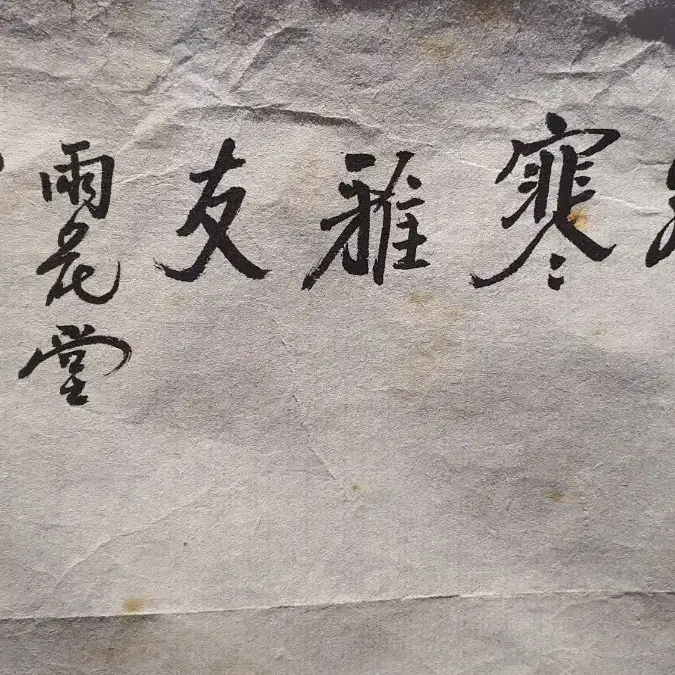 寒雅友
雨花堂